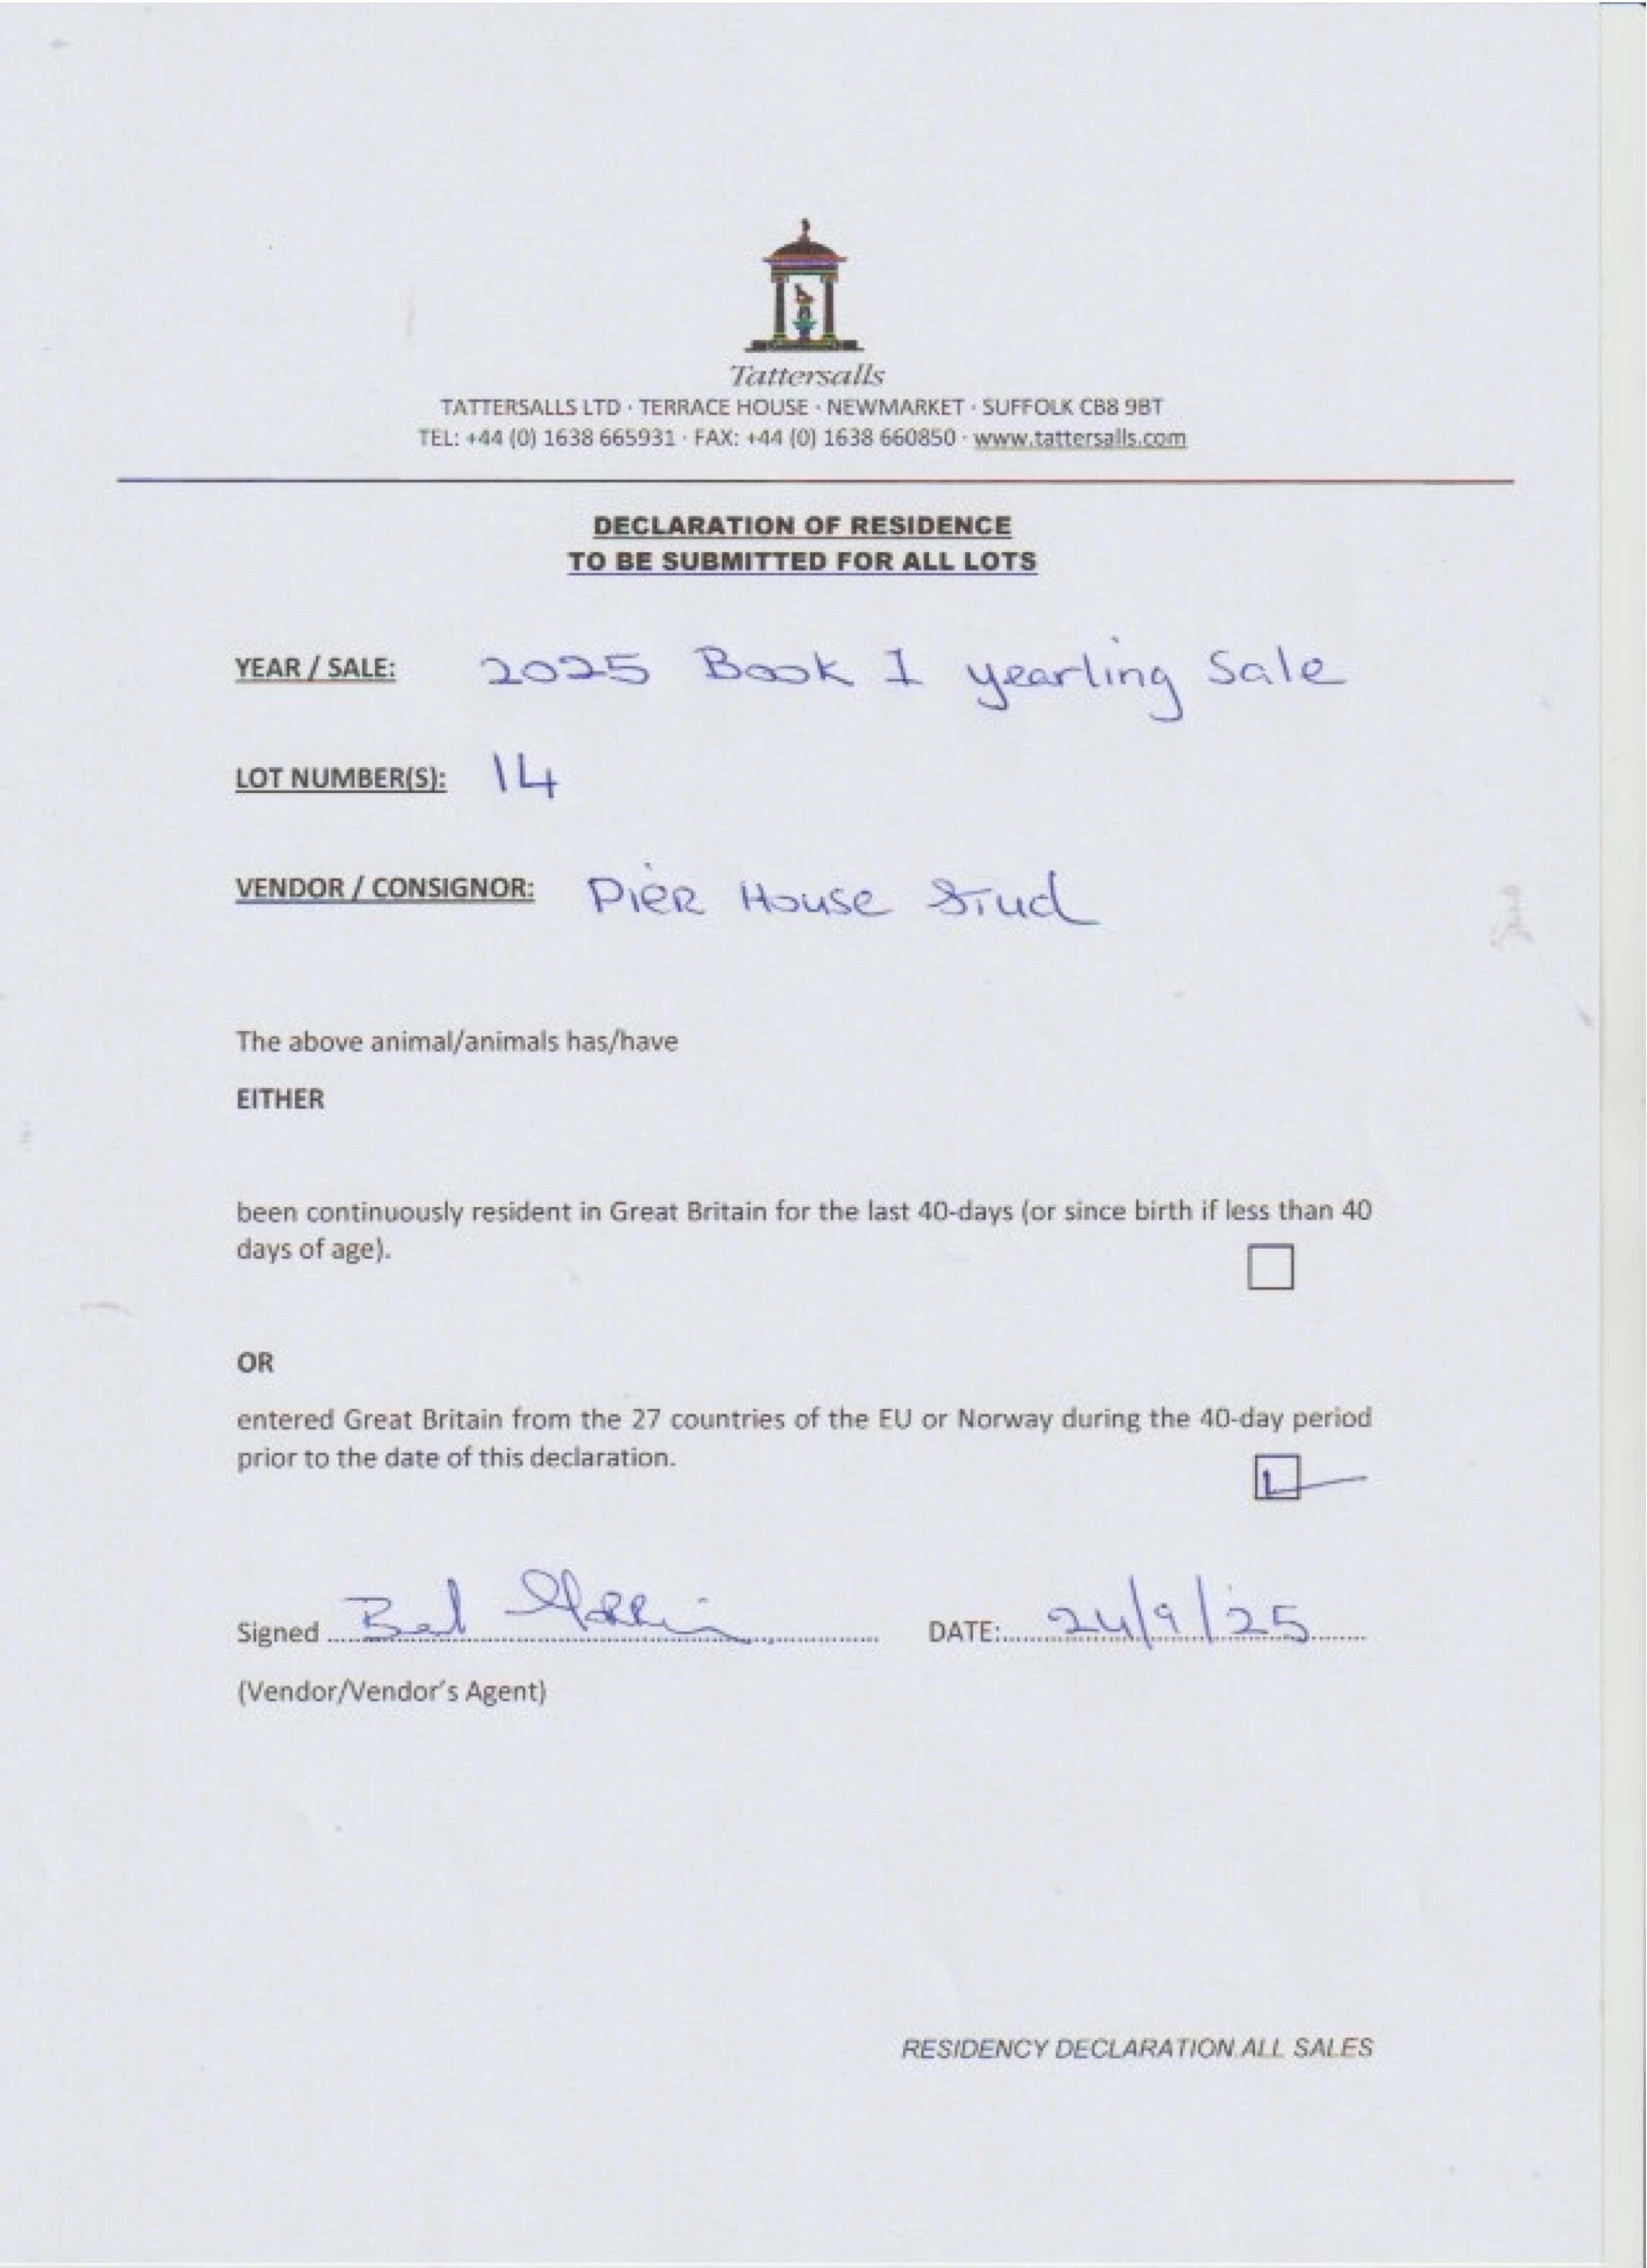 Tattersalls
TATTERSALLS LTD · TERRACE HOUSE · NEWMARKET · SUFFOLK CB8 9BT
TEL: +44 (0) 1638 665931 · FAX: +44 (0) 1638 660850 · www.tattersalls.com
DECLARATION OF RESIDENCE
TO BE SUBMITTED FOR ALL LOTS
YEAR / SALE: 2025 Book 1 yearling Sale
LOT NUMBER(S): 14
VENDOR / CONSIGNOR: Pier House Stud
The above animal/animals has/have
EITHER
been continuously resident in Great Britain for the last 40-days (or since birth if less than 40
days of age).
OR
entered Great Britain from the 27 countries of the EU or Norway during the 40-day period
prior to the date of this declaration.
Signed DATE: 24/9/25
(Vendor/Vendor's Agent)
RESIDENCY DECLARATION.ALL SALES